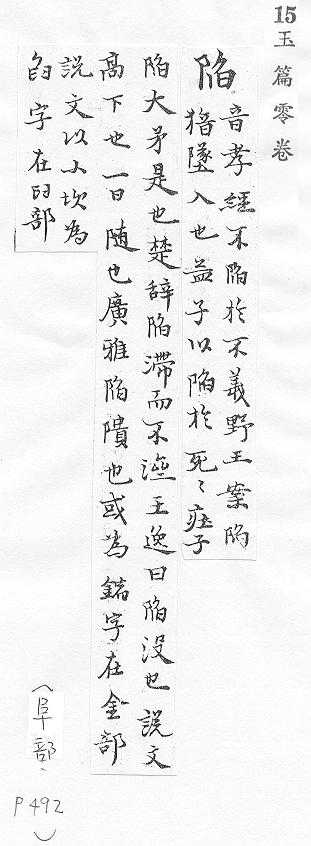 15 玉篇零卷
陷
音孝經不陷於不義野王案陷
猶墜入也益子以陷於死〻疰子
陷大矛是也楚辭陷滯而不濟王逸曰陷没也說文
高下也一曰随也廣雅陷隤也或為錎字在金部
說文以小坎為
臽字在臼部
(阜部、
P492)